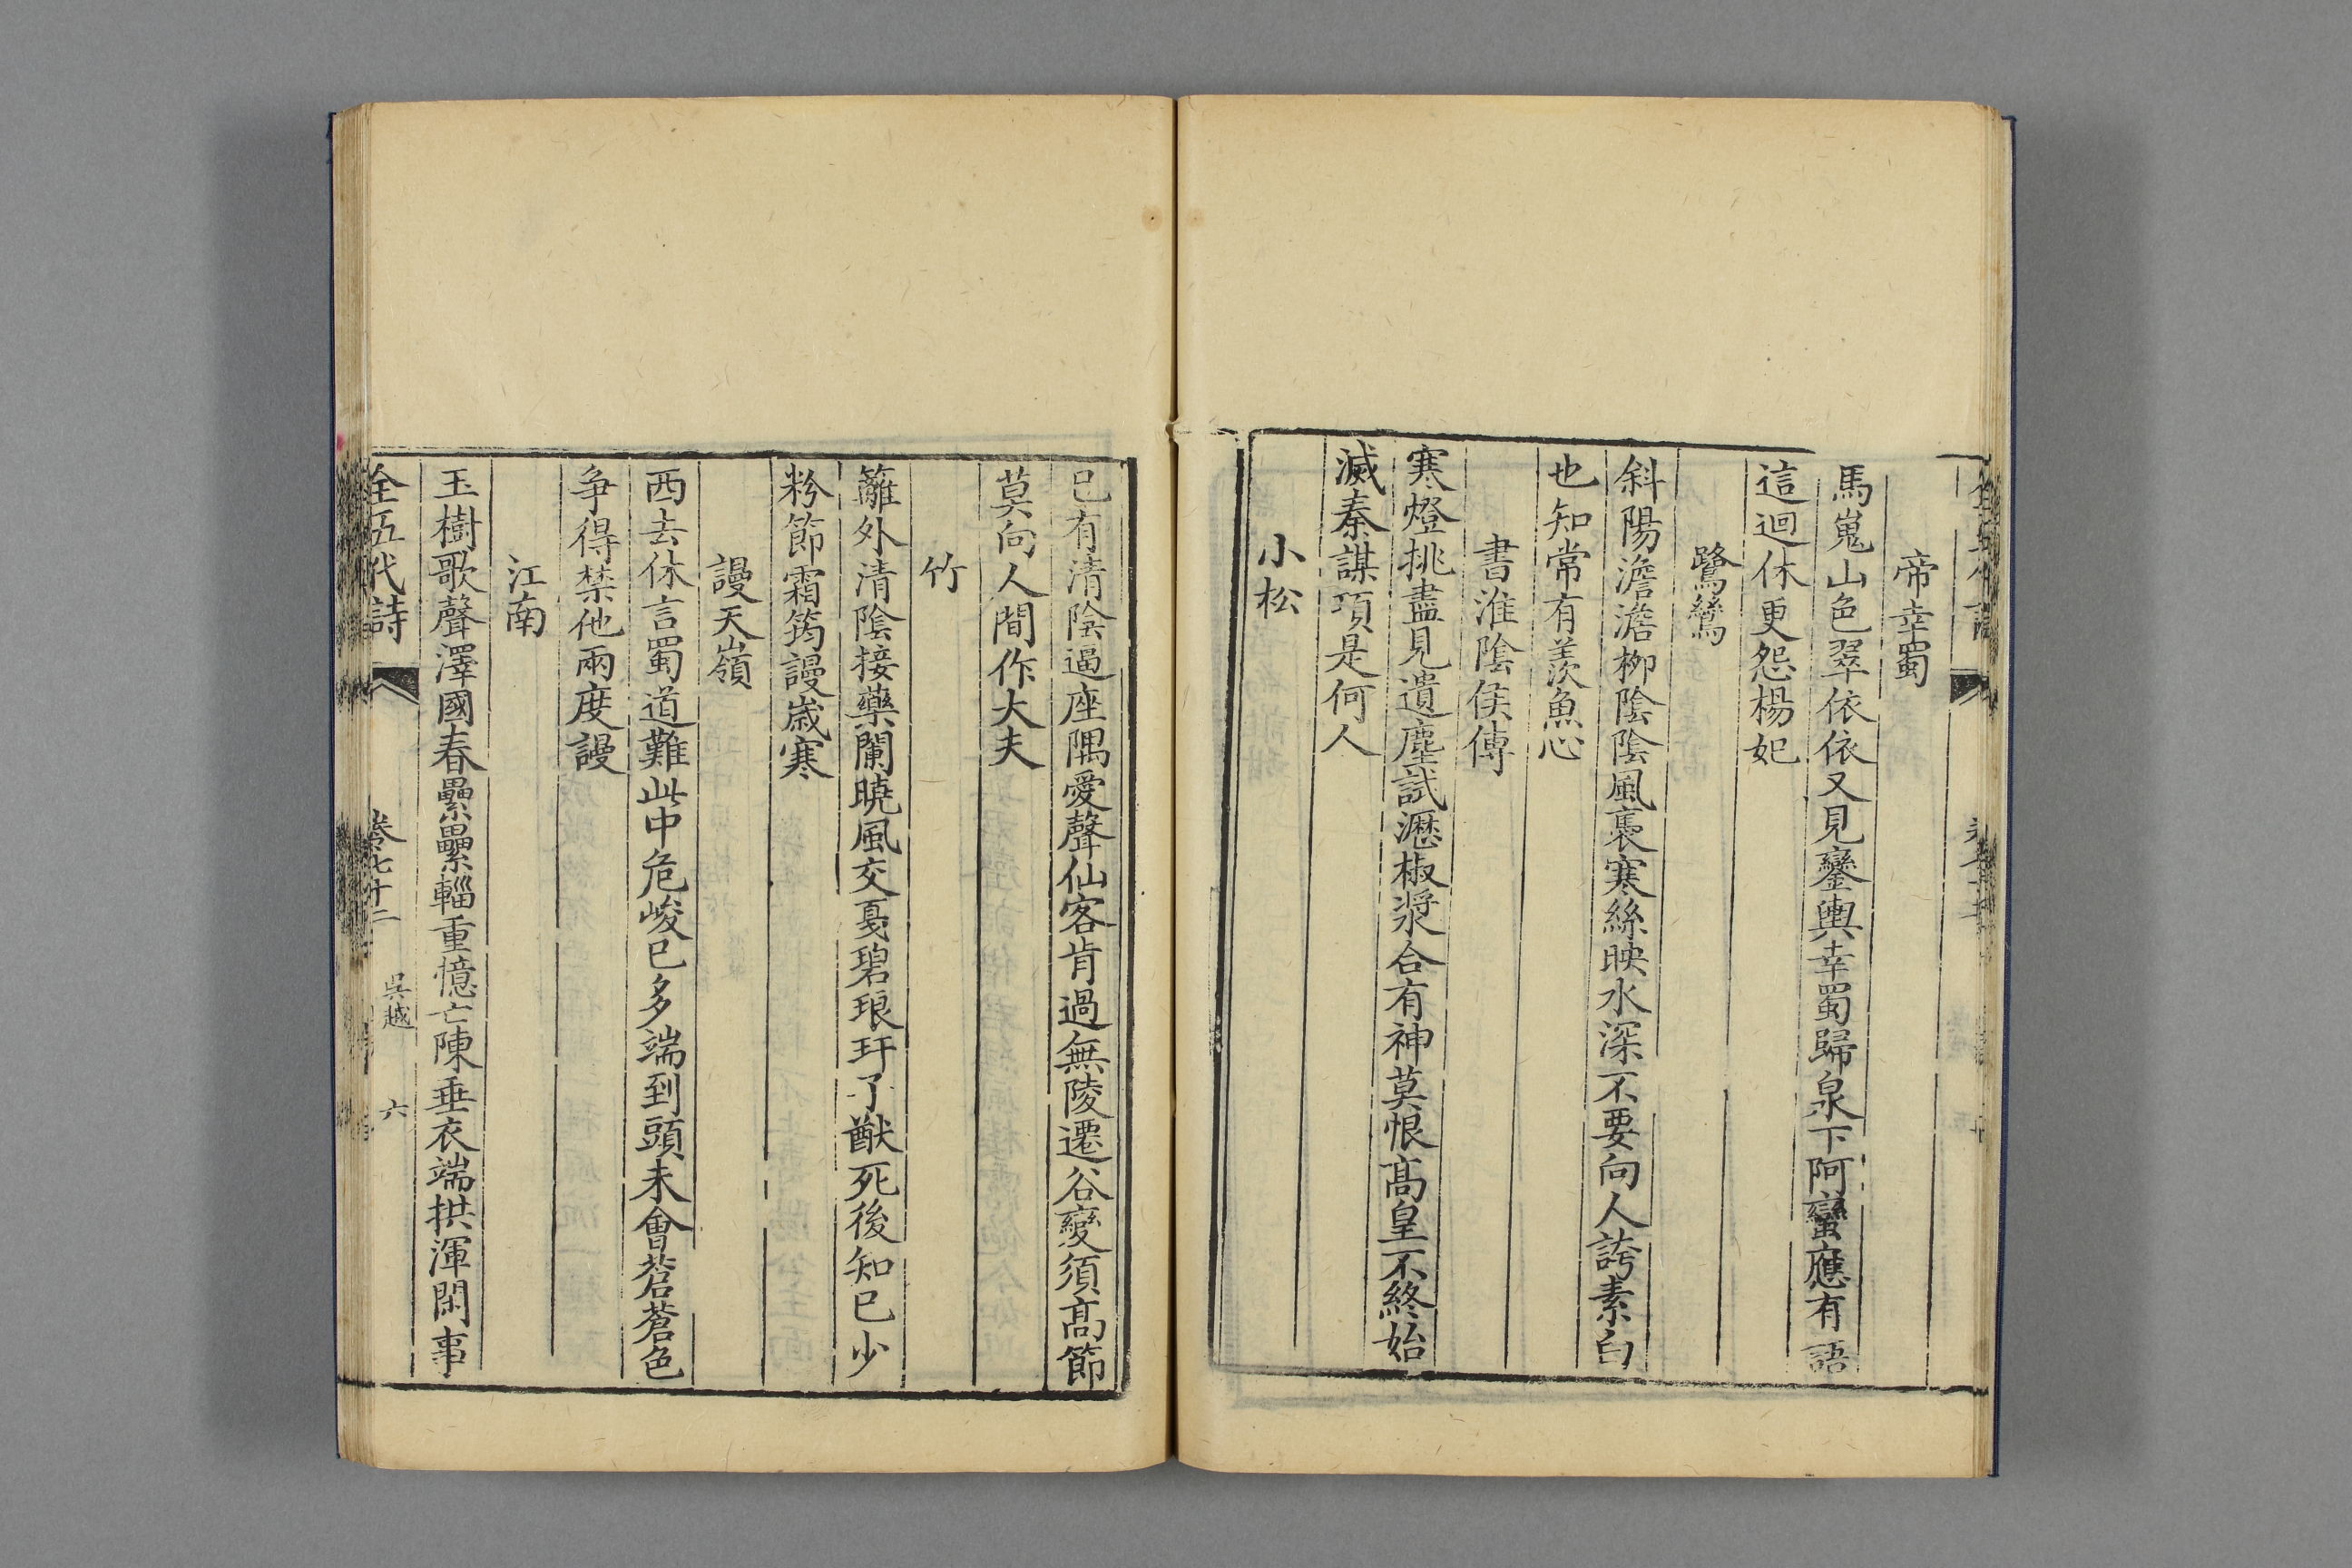 帝幸蜀
馬嵬山色翠依依又見鑾輿幸蜀歸泉下阿蠻應有語
這迴休更怨楊妃
鷺鷥
斜陽澹澹柳陰陰風裊寒絲映水深不要向人誇素白
也知常有羨魚心
書淮陰侯傳
寒燈挑盡見遺塵試瀝椒漿合有神莫恨髙皇不終始
滅秦謀項是何人
小松
已有清陰逼座隅愛聲仙客肯過無陵遷谷變須髙節
莫向人間作大夫
竹
籬外清陰接藥闌曉風交戛碧琅玕子猷死後知已少
粉節霜筠謾歲寒
謾天嶺
西去休言蜀道難此中危峻已多端到頭未會蒼蒼色
争得禁他兩度謾
江南
玉樹歌聲澤國春纍纍輜重憶亡陳垂衣端拱渾閑事
全五代詩
卷七十二
吳越
六